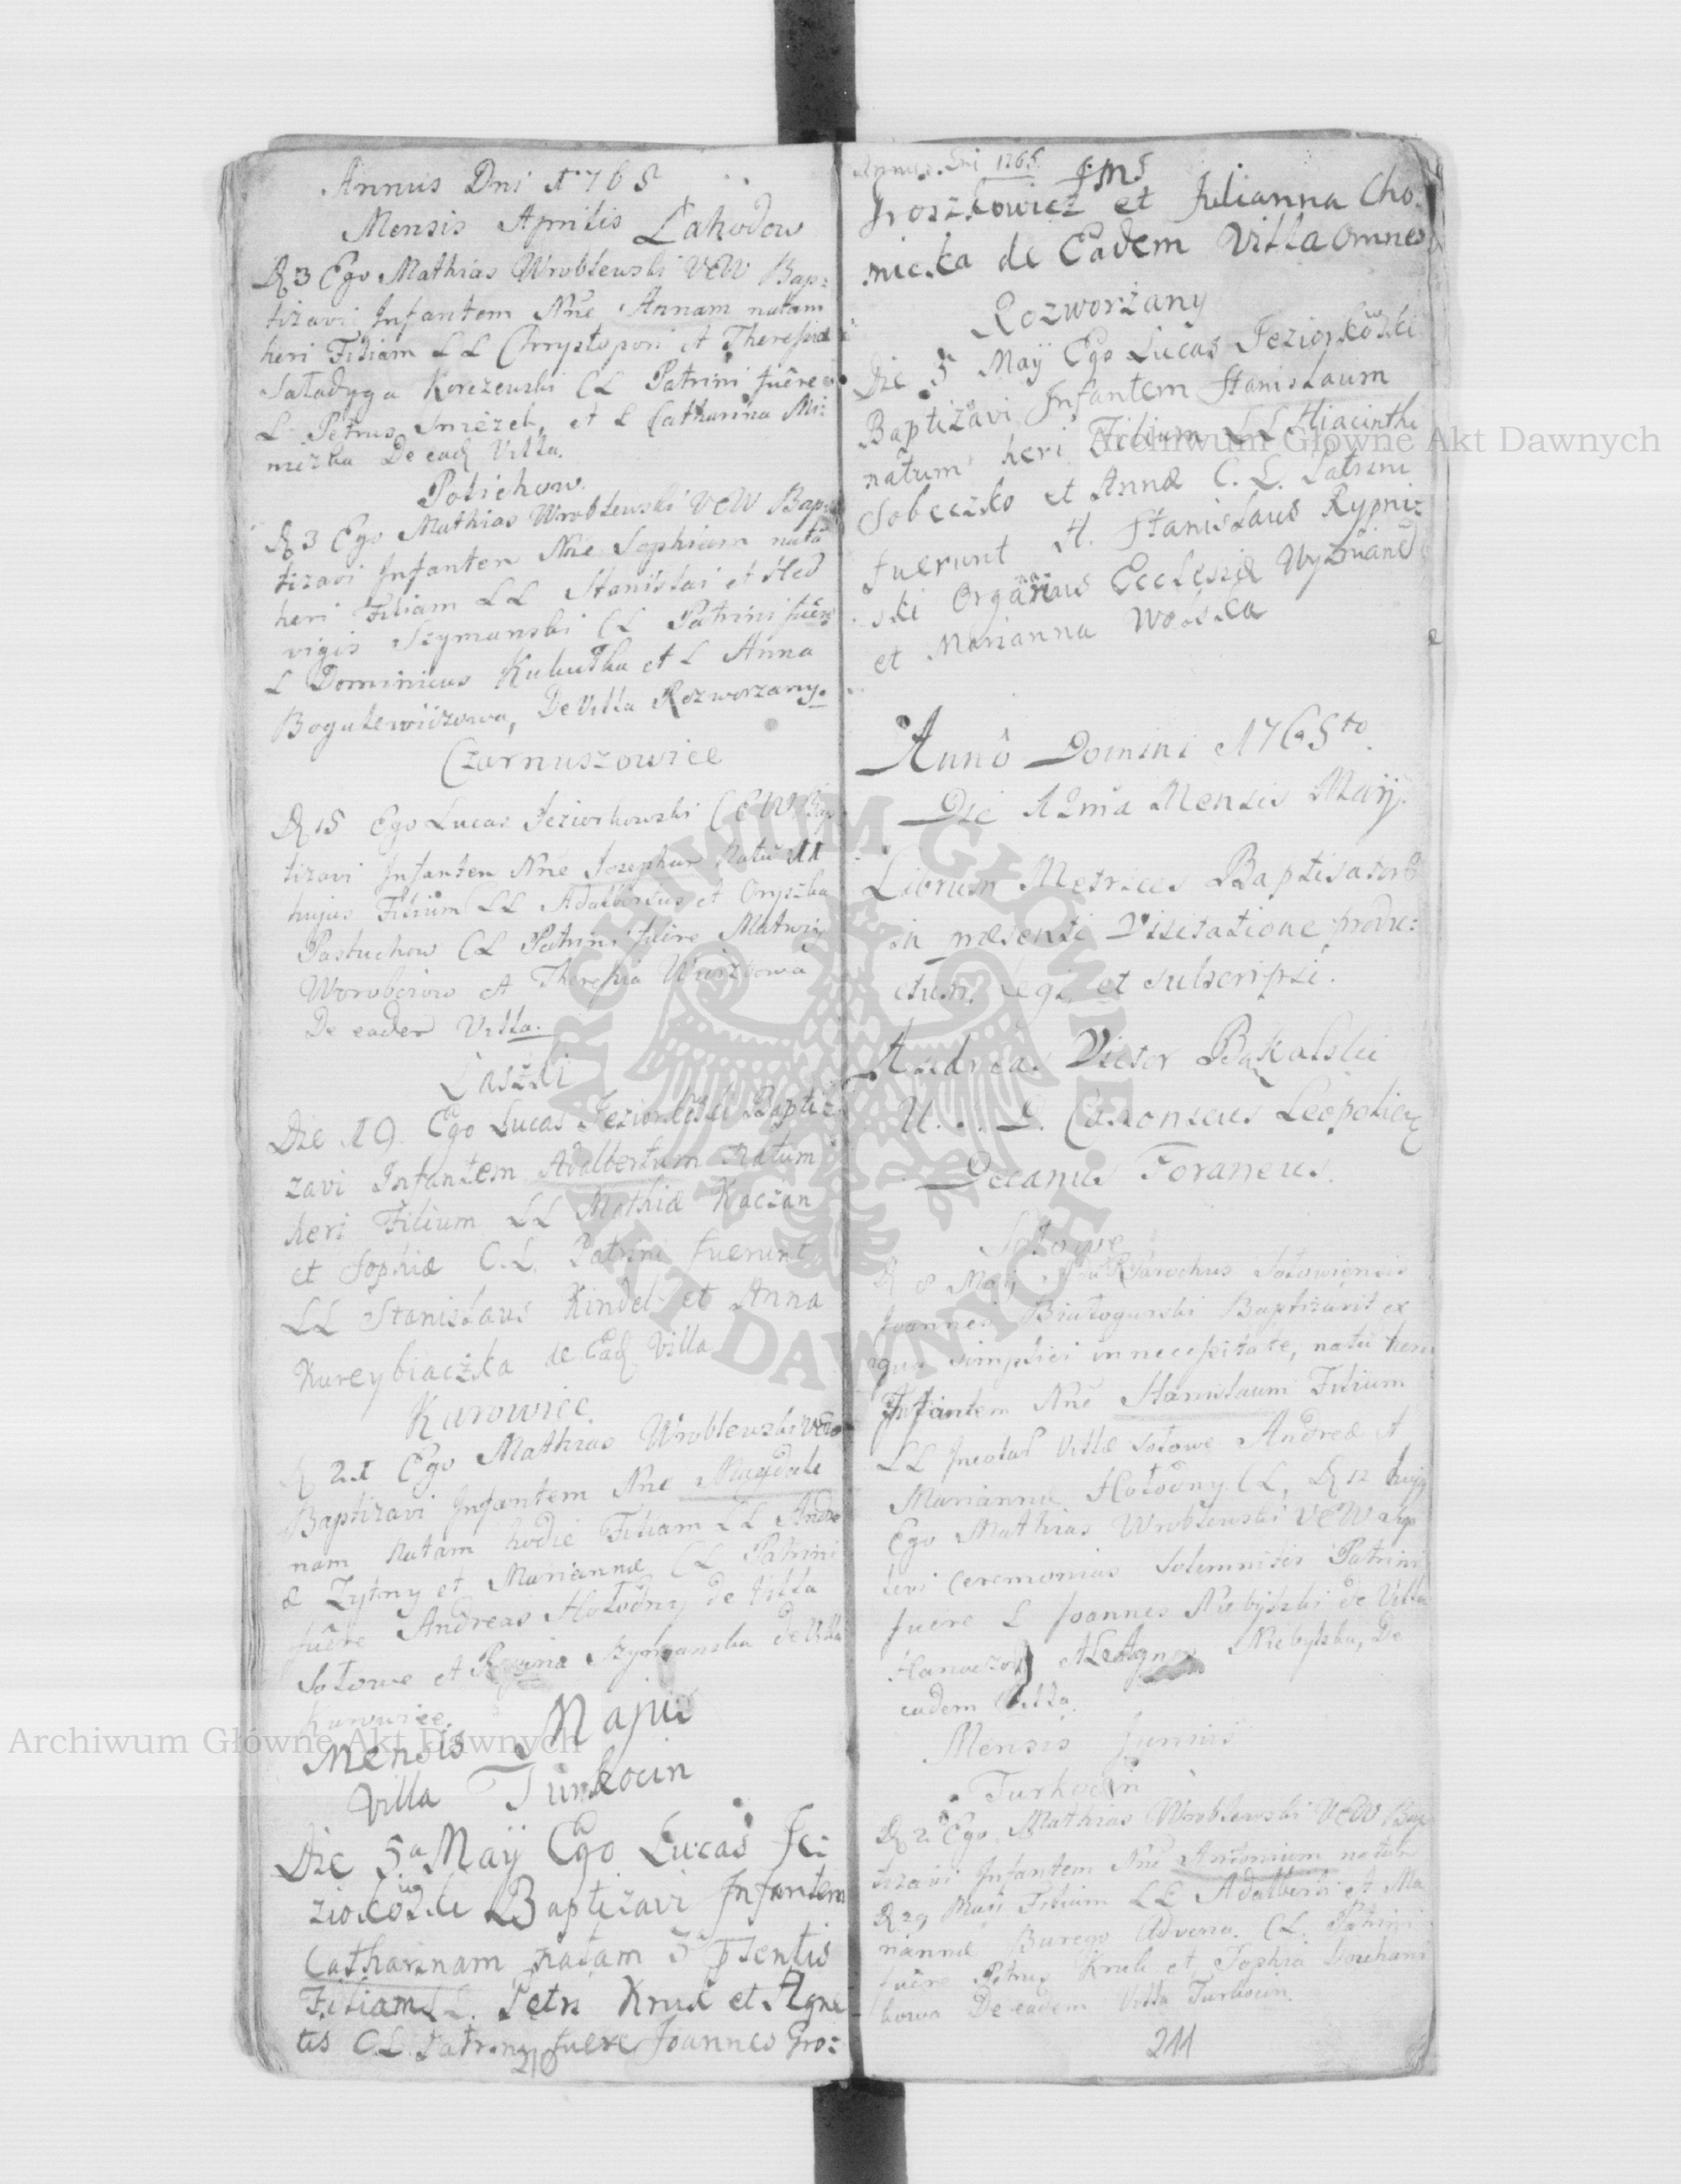 Annus Dni 1765
Mensis Aprilis Lahodow
D 3 Ego Mathias Wroblewski VEW Bap:
tizavi Infantem Nne Annam natam
heri Filiam LL Chrystopori et Theresiæ
Saladyga Korczewski CL Patrini fuêre
L Petrus Smėzek, et L Catharina Mi:
nizka De ead Villa.
Polichow.
D 3 Ego Mathias Wroblewski VEW Bap:
tizavi Infantem Nne Sophiam nata
heri Filiam LL Stanislai et Hed
vigis Szymanski CL Patrini fuêre
L Dominicus Kukulka et L Anna
Bogulewiczowa, De Villa Rozworzany.
Czarnuszowice
D 15 Ego Lucas Jeziorkowski CEW Bap
tizavi Infantem Nne Josephum Natu 11
hujus Filium LL Adalbertus et Oryszka
Pastuchow CL Patrini fuêre Matwij
Worobciow et Theresia
De eadem Villa.
Laszki
Die 19. Ego Lucas Jeziorkoski Bapti:
zavi Infantem Adalbertum Natum
heri Filium LL Mathiæ Kaczan
et Sophiæ C.L. Patrini fuerunt
LL Stanislaus Kindel et Anna
Kureybiaczka de Ead Villa
Kurowice.
D 21 Ego Mathias Wroblewski VEW
Baptizavi Infantem Nne Magdale
nam Natam hodie Filiam LL Andre
æ Zytny et Mariannæ CL Patrini
fuêre Andreas Holodny de Villa
Solowe et Regina Szymanska de Villa
Kurowice.
Mensis Majus
Villa Turkocin
Die 5a Maÿ Ego Lucas Je:
ziorkoski Baptizavi Infantem
Catharinam natam 3 psentis
Filiam LL. Petri Kruk et Agne
tis C.L. Patrini fuere Joannes Gro:
210
Annus Dni 1765
Groszkowicz et Julianna Cho:
micka de Eadem Villa omnes
Rozworzany
Die 5 Maÿ Ego Lucas Jeziorkowski
Baptizavi Infantem Stanislaum
natum heri Filium LL Hiacinthi
Sobeczko et Annæ C. L. Patrini
fuerunt H. Stanislaus Rypni:
ski Organarius Ecclesiæ Wyznane
et Marianna Wolska
Annô Domini 1765to.
Die 12ma Mensis Maÿ.
Librum Metrices Baptisator
in præsenti Visitatione produ:
ctum, legi et subscripsi.
Andreas Victor Bakalski
U. J. D. Canonicus Leopolien
Decanus Foraneus.
Solowe
D 8 Maÿ Parochus Solowiensis
Joannes Bialogurski Baptizavit ex
aqua simplici in necessitate, natu heri
Infantem Nne Stanislaum Filium
LL Incolar Villæ Solowe Andreæ et
Mariannæ Holodny CL, D 12 hujus
Ego Mathias Wroblewski VEW sup
levi Ceremonias Solemnites Patrini
fuere L Joannes Niebylski de Villa
Hanaczow et L Agnes Niebylska, De
eadem Villa.
Mensis Junius
Turkocin
D 2 Ego Mathias Wroblewski VEW Bap
tizavi Infantem Nne Antonium natum
D 29 Maji Filium LL Adalberti et Ma
riannæ Burego Advena. CL. Patrini
fuêre Petrus Kruk et Sophia
De eadem Villa Turkocin.
211
Archiwum Główne Akt Dawnych
Archiwum Główne Akt Dawnych
ARCHIWUM GŁÓWNE AKT DAWNYCH